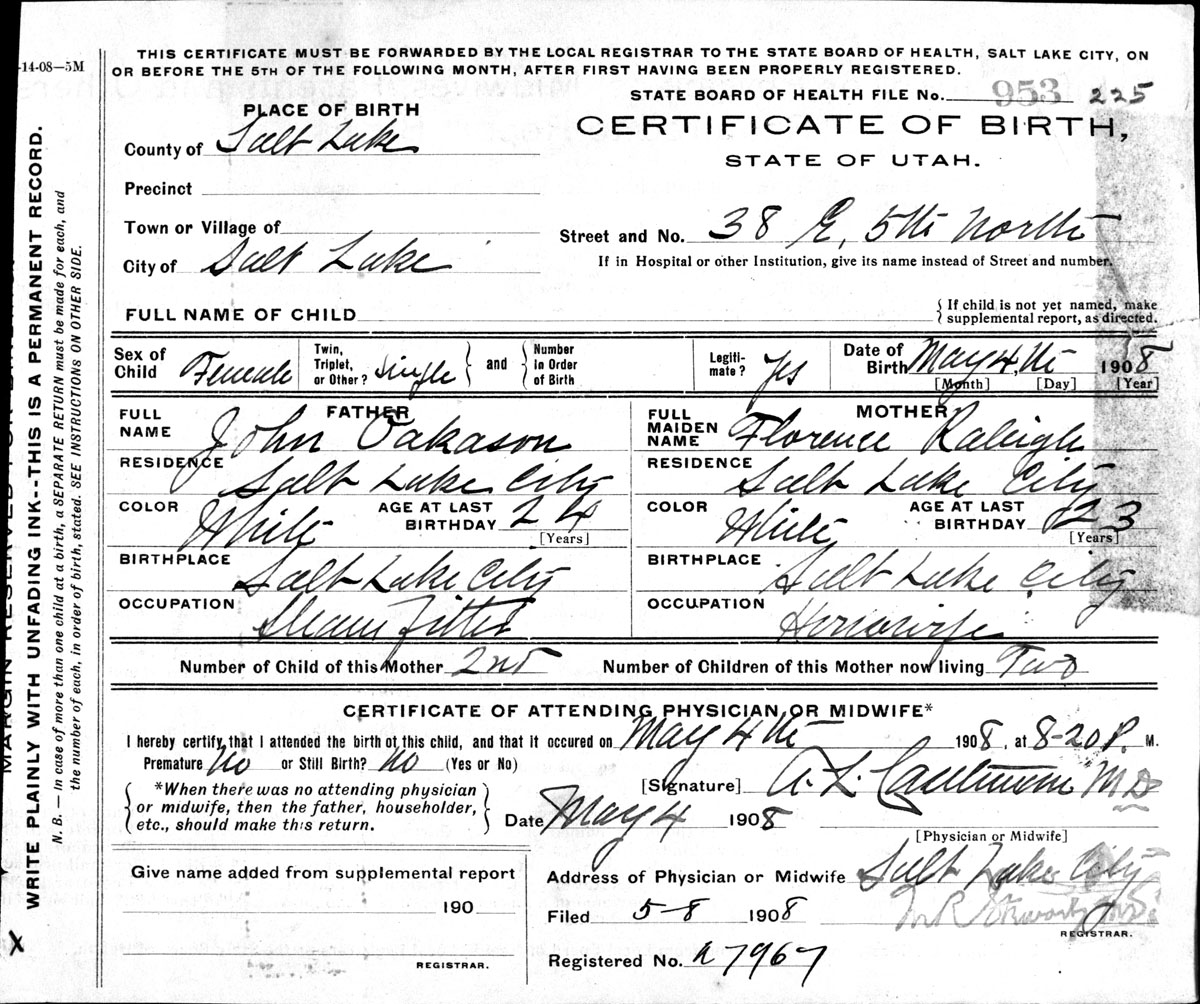 -14-08—5M
THIS CERTIFICATE MUST BE FORWARDED BY THE LOCAL REGISTRAR TO THE STATE BOARD OF HEALTH, SALT LAKE CITY, ON
OR BEFORE THE 5TH OF THE FOLLOWING MONTH, AFTER FIRST HAVING BEEN PROPERLY REGISTERED.
STATE BOARD OF HEALTH FILE No. 953 225
PLACE OF BIRTH
CERTIFICATE OF BIRTH,
STATE OF UTAH.
County of Salt Lake
Precinct
Town or Village of
Street and No. 38 E. 5th North
City of Salt Lake
If in Hospital or other Institution, give its name instead of Street and number.
FULL NAME OF CHILD
If child is not yet named, make
supplemental report, as directed.
Sex of Child Female
Twin, Triplet, or Other? Single
and
Number in Order of Birth
Legiti- mate? Yes
Date of Birth May 4th 1908
[Month] [Day] [Year]
FATHER
FULL NAME John Oakason
RESIDENCE Salt Lake City
COLOR White
AGE AT LAST BIRTHDAY 24
[Years]
BIRTHPLACE Salt Lake City
OCCUPATION Steam Fitter
MOTHER
FULL MAIDEN NAME Florence Raleigh
RESIDENCE Salt Lake City
COLOR White
AGE AT LAST BIRTHDAY 23
[Years]
BIRTHPLACE Salt Lake City
OCCUPATION Housewife
Number of Child of this Mother 2nd
Number of Children of this Mother now living Two
CERTIFICATE OF ATTENDING PHYSICIAN OR MIDWIFE*
I hereby certify that I attended the birth of this child, and that it occured on May 4th 1908, at 8-20 P. M.
Premature No or Still Birth? No (Yes or No)
*When there was no attending physician
or midwife, then the father, householder,
etc., should make this return.
[Signature] A. L. M D
Date May 4 1908
[Physician or Midwife]
Give name added from supplemental report
190
REGISTRAR.
Address of Physician or Midwife Salt Lake City
Filed 5-8 1908
REGISTRAR.
Registered No. a7967
MARGIN RESERVED FOR
WRITE PLAINLY WITH UNFADING INK--THIS IS A PERMANENT RECORD.
N. B. — In case of more than one child at a birth, a SEPARATE RETURN must be made for each, and
the number of each, in order of birth, stated. SEE INSTRUCTIONS ON OTHER SIDE.
X